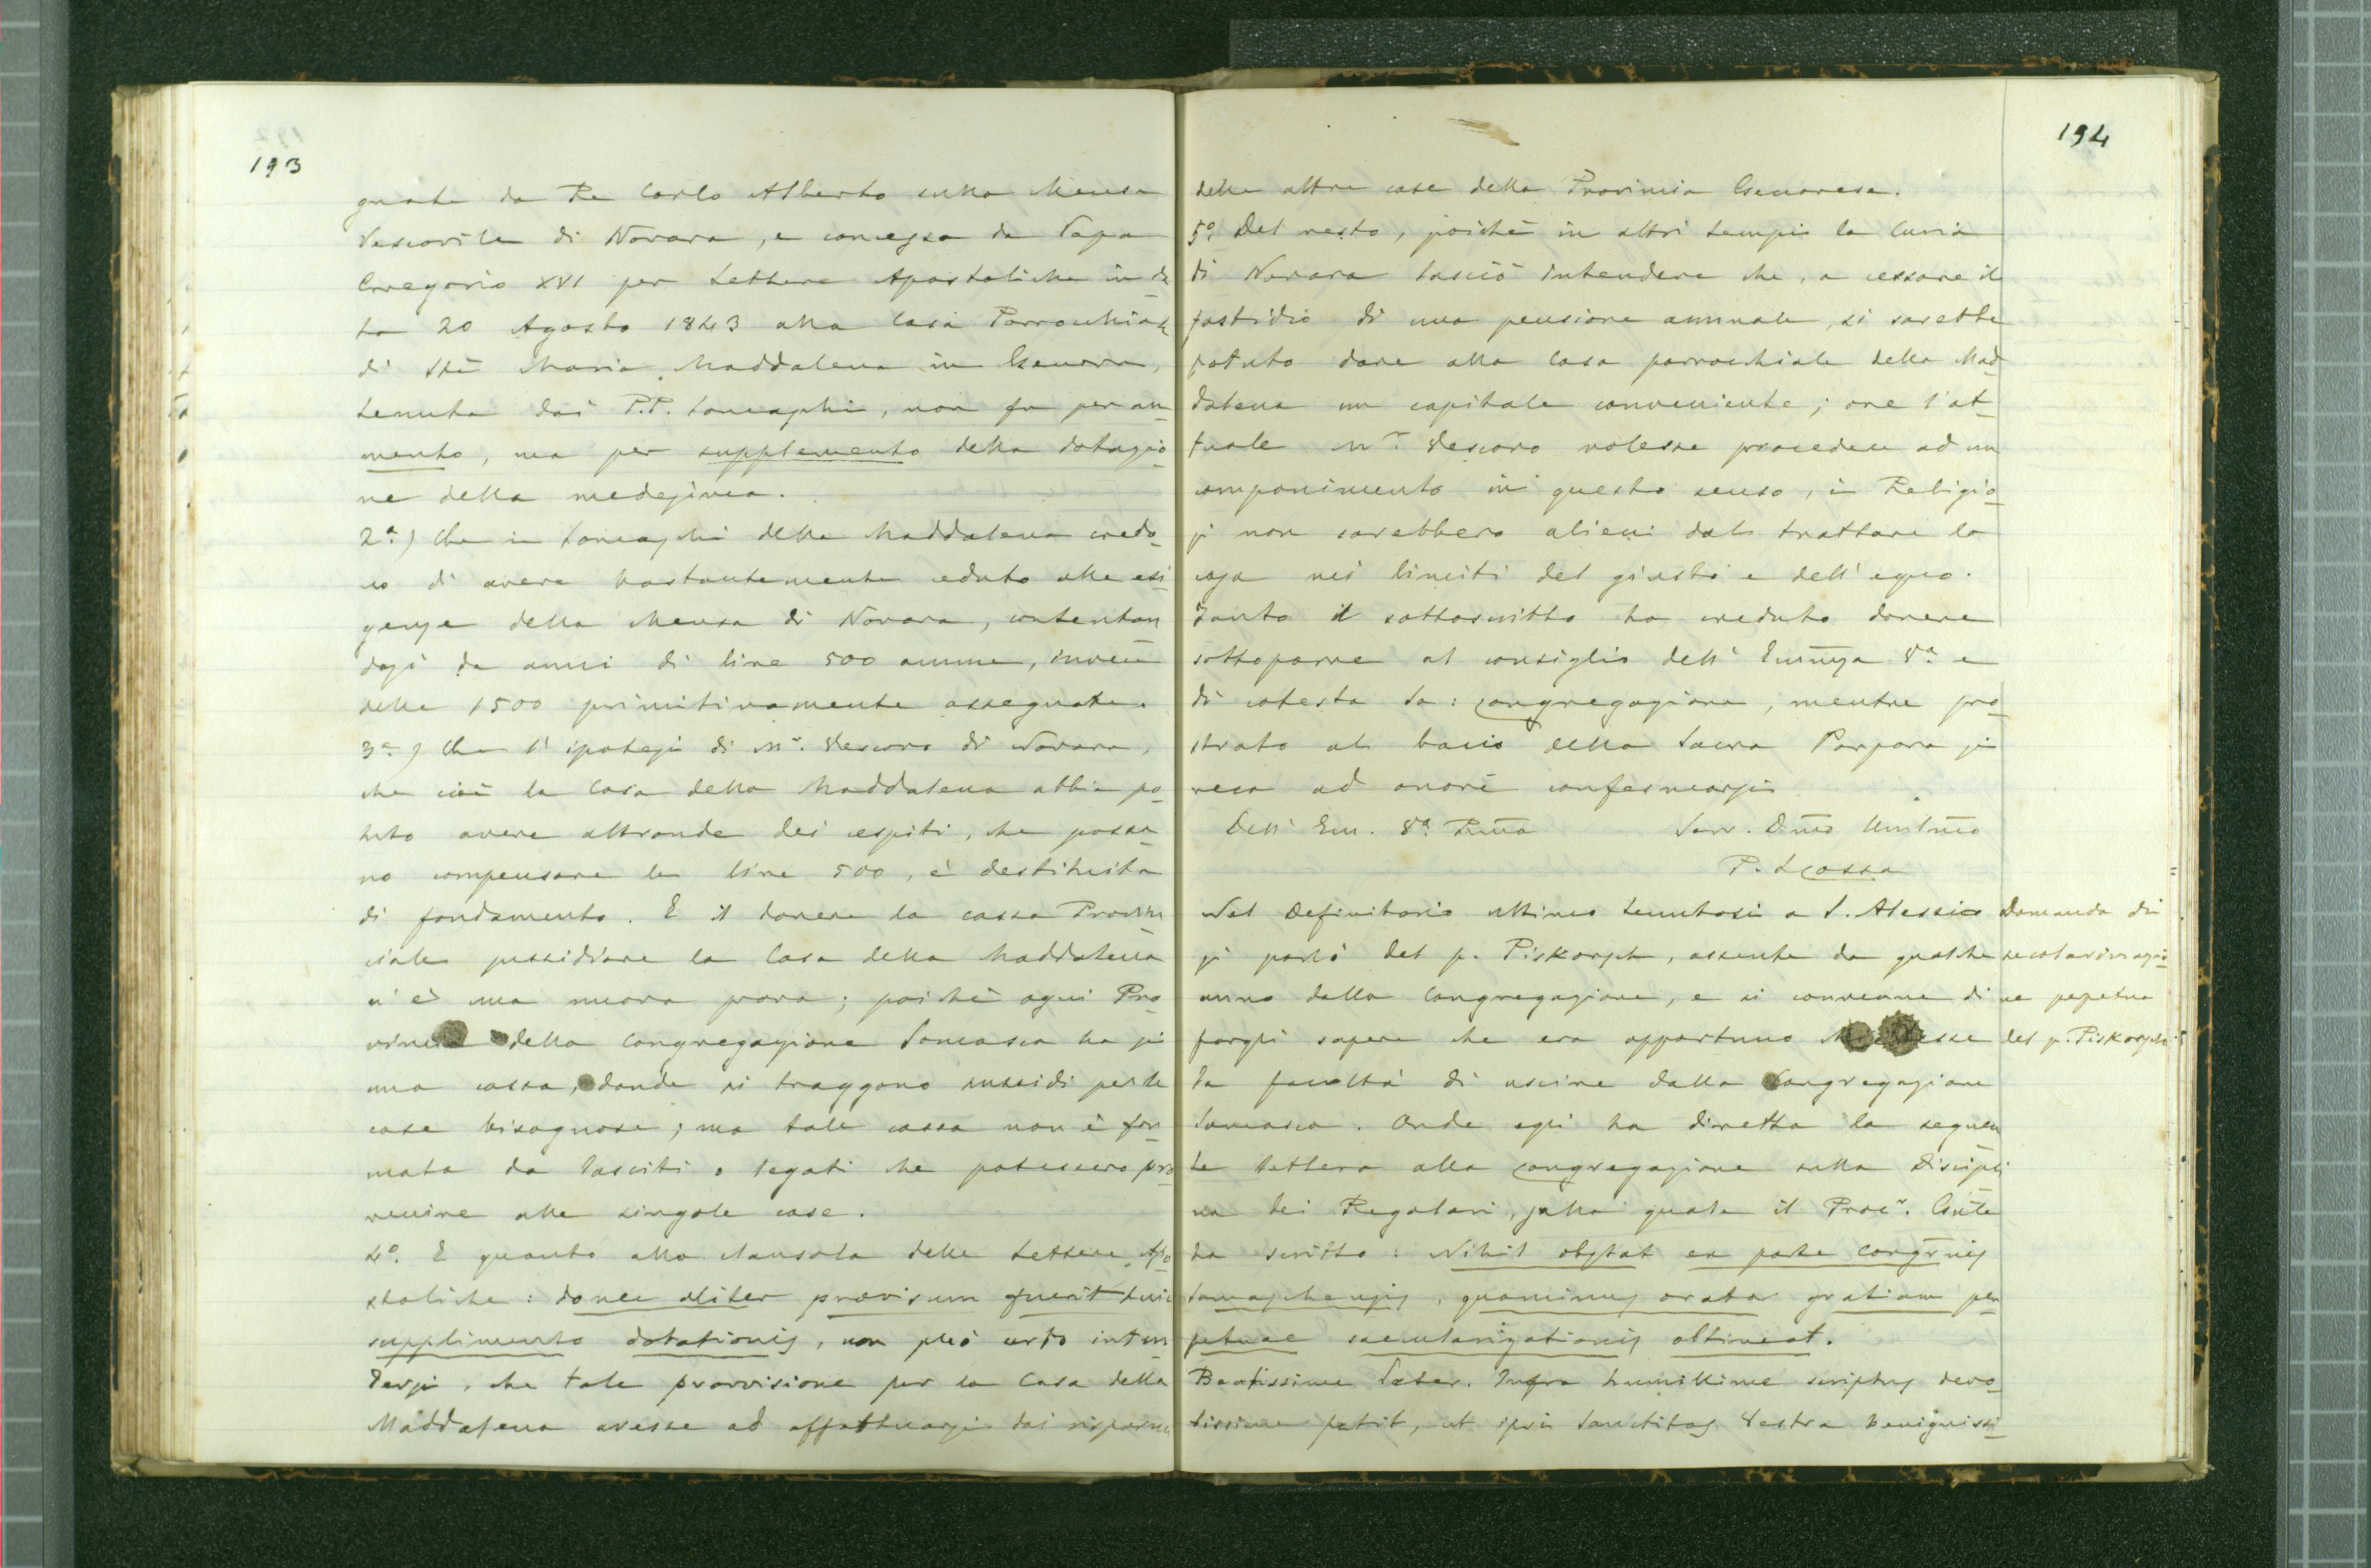 193
gnate da Re Carlo Alberto sulla Mensa
Vescovile di Novara, e concessa da Papa
Gregorio XVI per Lettere Apostoliche in da
ta 20 Agosto 1843 alla Casa Parrocchiale
di Sta Maria Maddalena in Genova,
tenuta dai P.P. Somaschi, non fu per au
mento, ma per supplemento della dotazio
ne della medesima.
2a.) Che i Somaschi della Maddalena credo
no di avere bastantemente ceduto alle esi
genze della Mensa di Novara, contentan
dosi da anni di lire 500 annue, invece
delle 1500 primitivamente assegnate.
3a.) Che l'ipotesi di Mr. Vescovo di Novara,
che cioè la Casa della Maddalena abbia po
tuto avere altronde dei cespiti, che possa
no compensare le lire 500, è destituita
di fondamento. E il dovere la cassa Provin
ciale sussidiare la Casa della Maddalena
n'è una nuova prova; poichè ogni Pro
vincia della Congregazione Somasca ha sì
una cassa, donde si traggono sussidi per le
case bisognose; ma tale cassa non è for
mata da lasciti o legati che potessero pro
venire alle singole case.
4o. E quanto alla clausola delle Lettere Apo
stoliche: donec aliter provisum fuerit huic
supplimento dotationis, non può certo inten
dersi, che tale provvisione per la Casa della
Maddalena avesse ad effettuarsi dai risparmi
194
delle altre case della Provincia Genovese.
5o. Del resto, poichè in altri tempi la Curia
di Novara lasciò intendere che, a cessare il
fastidio di una pensione annuale, si sarebbe
potuto dare alla Casa parrocchiale della Mad
dalena un capitale conveniente; ove l'at
tuale Mr. Vescovo volesse procedere ad un
componimento in questo senso, i Religio
si non sarebbero alieni dal trattare la
cosa nei limiti del giusto e dell'equo.
Tanto il sottoscritto ha creduto dovere
sottoporre al consiglio dell'Eminza Va. e
di cotesta Sa: Congregazione, mentre pro
strato al bacio della Sacra Porpora si
reca ad onore confermarsi
Dell'Em. Va. Rma Serv. Dmo Umilmo
P.
Nel Definitorio ultimo tenutosi a S. Alessio
si parlò del p. Piskorsch, assente da qualche
anno dalla Congregazione, e si convenne di
fargli sapere che era opportuno
la facoltà di uscire dalla Congregazione
Somasca. Onde egli ha diretta la seguen
te lettera alla Congregazione sulla Discipli
na dei Regolari, sulla quale il Procr. Gnle
ha scritto: Nihil obstat ex parte Congnis
Somaschensis, quominus orator gratiam per
petuae saecularizationis obtineat.
Beatissime Pater. Infra humillime scriptus devo
tissime petit, ut ipsi Sanctitas Vestra benignissi
Domanda di
secolarizzazio
ne perpetua
del p. Piskorsch